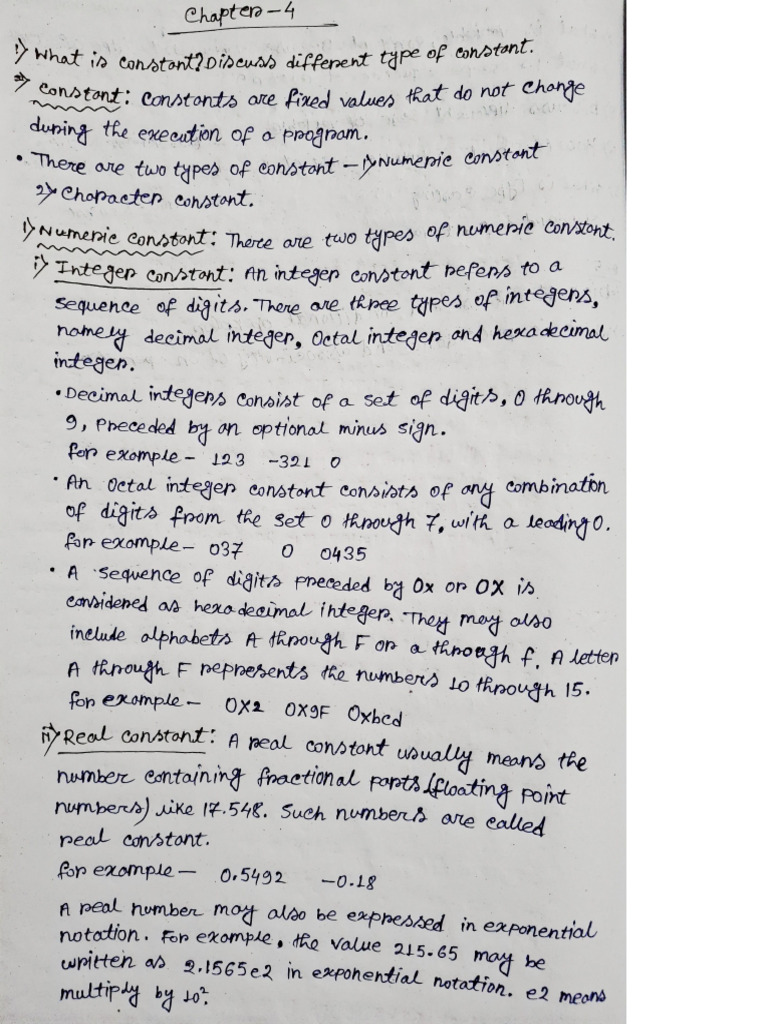 Chapter-4
1) What is constant? Discuss different type of constant.
=> constant: constants are fixed values that do not change
during the execution of a program.
• There are two types of constant - 1) Numeric constant
2) Character constant.
1) Numeric constant: There are two types of numeric constant.
i) Integer constant: An integer constant refers to a
sequence of digits. There are three types of integers,
namely decimal integer, octal integer and hexadecimal
integer.
• Decimal integers consist of a set of digits, 0 through
9, preceded by an optional minus sign.
for example - 123 -321 0
• An octal integer constant consists of any combination
of digits from the set 0 through 7, with a leading 0.
for example - 037 0 0435
• A sequence of digits preceded by 0x or 0X is
considered as hexadecimal integer. They may also
include alphabets A through F or a through f. A letter
A through F represents the numbers 10 through 15.
for example - 0X2 0X9F 0xbcd
ii) Real constant: A real constant usually means the
number containing fractional parts (floating point
numbers) like 17.548. Such numbers are called
real constant.
for example - 0.5492 -0.18
A real number may also be expressed in exponential
notation. For example, the value 215.65 may be
written as 2.1565e2 in exponential notation. e2 means
multiply by 10².